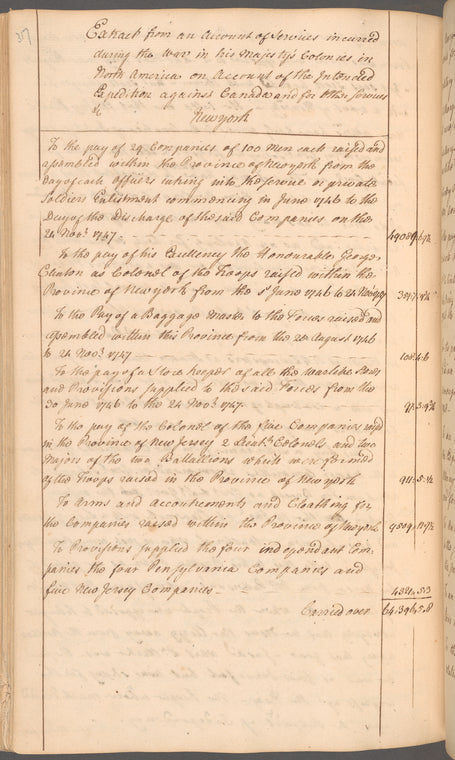 317
Extract from an Account of Services incurred
during the War in his Majestys Colonies in
North America on Account of the Intended
Expedition against Canada and for other Services
Newyork
To the pay of 29 Companies of 100 Men each raised and
assembled within the Province of Newyork from the
Day of each officers taking into the service or private
Soldiers Enlistment commencing in June 1746 to the
Day of the Discharge of the said Companies on the
24 Novr. 1747
To the pay of his Excellency the Honourable George
Clinton as Colonel of the Troops raised within the
Province of Newyork from the 1st June 1746 to 24 Novr 1747
To the Pay of a Baggage Master to the Forces raised and
assembled within this Province from the 20 August 1746
to 24 Novr. 1747
To the pay of a Store Keeper of all the Warlike Stores
and Provisions supplied to the said Forces from the
30 June 1746 to the 24 Novr. 1747.
To the pay of the Colonel of the five Companies raisd
in the Province of New Jersey 2 Lieutt. Colonels and two
Majors of the two Battallions which were formed
of the Troops raised in the Province of Newyork
To Arms and Accoutrements and Cloathing for
the Companies raised within the Province of Newyork
To Provisions supplied the four independent Com-
panies the four Pensylvania Companies and
five New Jersey Companies
Carried over